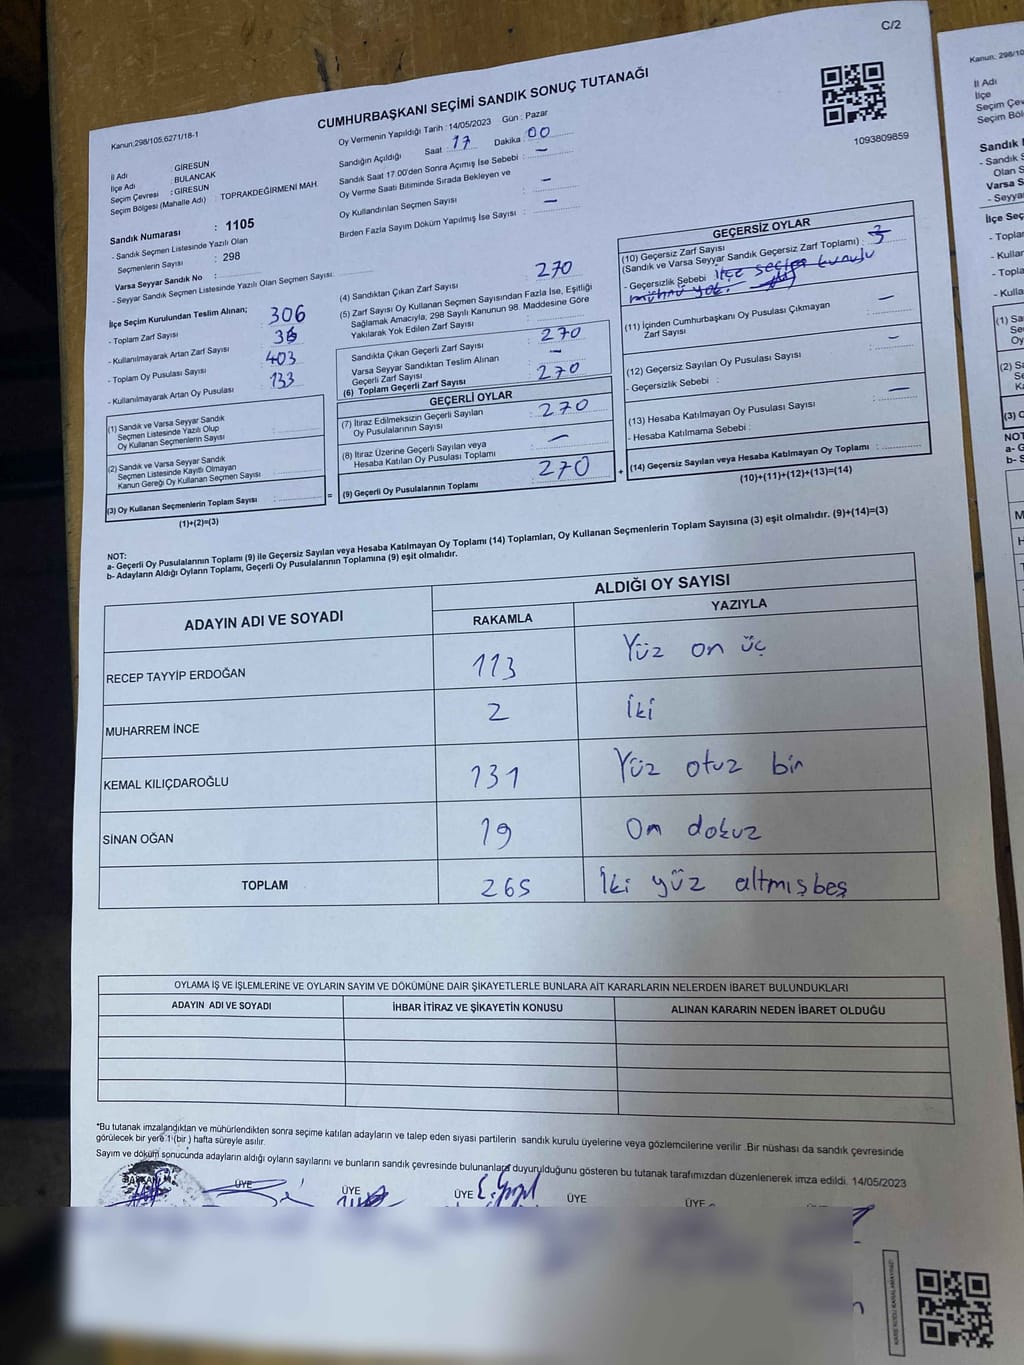 C/2
CUMHURBAŞKANI SEÇİMİ SANDIK SONUÇ TUTANAĞI
Kanun:298/105,6271/18-1
1093809859
İl Adı : GİRESUN
İlçe Adı : BULANCAK
Seçim Çevresi : GİRESUN
Seçim Bölgesi (Mahalle Adı) : TOPRAKDEĞİRMENİ MAH
Sandık Numarası : 1105
- Sandık Seçmen Listesinde Yazılı Olan
Seçmenlerin Sayısı : 298
Varsa Seyyar Sandık No :
- Seyyar Sandık Seçmen Listesinde Yazılı Olan Seçmen Sayısı
Oy Vermenin Yapıldığı Tarih : 14/05/2023 Gün : Pazar
Sandığın Açıldığı Saat 17 Dakika 00
Sandık Saat 17:00'den Sonra Açımış İse Sebebi : —
Oy Verme Saati Bitiminde Sırada Bekleyen ve
Oy Kullandırılan Seçmen Sayısı —
Birden Fazla Sayım Döküm Yapılmış İse Sayısı : —
İlçe Seçim Kurulundan Teslim Alınan;
- Toplam Zarf Sayısı : 306
- Kullanılmayarak Artan Zarf Sayısı : 36
- Toplam Oy Pusulası Sayısı : 403
- Kullanılmayarak Artan Oy Pusulası : 133
(1) Sandık ve Varsa Seyyar Sandık
Seçmen Listesinde Yazılı Olup
Oy Kullanan Seçmenlerin Sayısı :
(2) Sandık ve Varsa Seyyar Sandık
Seçmen Listesinde Kayıtlı Olmayan
Kanun Gereği Oy Kullanan Seçmen Sayısı :
(3) Oy Kullanan Seçmenlerin Toplam Sayısı :
(1)+(2)=(3)
=
(4) Sandıktan Çıkan Zarf Sayısı : 270
(5) Zarf Sayısı Oy Kullanan Seçmen Sayısından Fazla İse, Eşitliği
Sağlamak Amacıyla, 298 Sayılı Kanunun 98. Maddesine Göre
Yakılarak Yok Edilen Zarf Sayısı :
Sandıkta Çıkan Geçerli Zarf Sayısı : 270
Varsa Seyyar Sandıktan Teslim Alınan
Geçerli Zarf Sayısı : —
(6) Toplam Geçerli Zarf Sayısı : 270
GEÇERLİ OYLAR
(7) İtiraz Edilmeksizin Geçerli Sayılan
Oy Pusulalarının Sayısı : 270
(8) İtiraz Üzerine Geçerli Sayılan veya
Hesaba Katılan Oy Pusulası Toplamı : —
(9) Geçerli Oy Pusulalarının Toplamı : 270
+
GEÇERSİZ OYLAR
(10) Geçersiz Zarf Sayısı
(Sandık ve Varsa Seyyar Sandık Geçersiz Zarf Toplamı) : 3
- Geçersizlik Sebebi : ilçe seçim kurulu
mührü yok.
(11) İçinden Cumhurbaşkanı Oy Pusulası Çıkmayan
Zarf Sayısı : —
(12) Geçersiz Sayılan Oy Pusulası Sayısı : —
- Geçersizlik Sebebi :
(13) Hesaba Katılmayan Oy Pusulası Sayısı : —
- Hesaba Katılmama Sebebi :
(14) Geçersiz Sayılan veya Hesaba Katılmayan Oy Toplamı :
(10)+(11)+(12)+(13)=(14)
NOT:
a- Geçerli Oy Pusulalarının Toplamı (9) ile Geçersiz Sayılan veya Hesaba Katılmayan Oy Toplamı (14) Toplamları, Oy Kullanan Seçmenlerin Toplam Sayısına (3) eşit olmalıdır. (9)+(14)=(3)
b- Adayların Aldığı Oyların Toplamı, Geçerli Oy Pusulalarının Toplamına (9) eşit olmalıdır.
ADAYIN ADI VE SOYADI ALDIĞI OY SAYISI
RAKAMLA YAZIYLA
RECEP TAYYİP ERDOĞAN 113 Yüz on üç
MUHARREM İNCE 2 İki
KEMAL KILIÇDAROĞLU 131 Yüz otuz bir
SİNAN OĞAN 19 On dokuz
TOPLAM 265 İki yüz altmışbeş
OYLAMA İŞ VE İŞLEMLERİNE VE OYLARIN SAYIM VE DÖKÜMÜNE DAİR ŞİKAYETLERLE BUNLARA AİT KARARLARIN NELERDEN İBARET BULUNDUKLARI
ADAYIN ADI VE SOYADI İHBAR İTİRAZ VE ŞİKAYETİN KONUSU ALINAN KARARIN NEDEN İBARET OLDUĞU
*Bu tutanak imzalandıktan ve mühürlendikten sonra seçime katılan adayların ve talep eden siyasi partilerin sandık kurulu üyelerine veya gözlemcilerine verilir .Bir nüshası da sandık çevresinde
görülecek bir yere 1 (bir) hafta süreyle asılır.
Sayım ve döküm sonucunda adayların aldığı oyların sayılarını ve bunların sandık çevresinde bulunanlara duyurulduğunu gösteren bu tutanak tarafımızdan düzenlenerek imza edildi. 14/05/2023
BAŞKAN ÜYE ÜYE ÜYE ÜYE ÜYE
Kanun: 298/10
İl Adı
İlçe
Seçim Çev
Seçim Böl